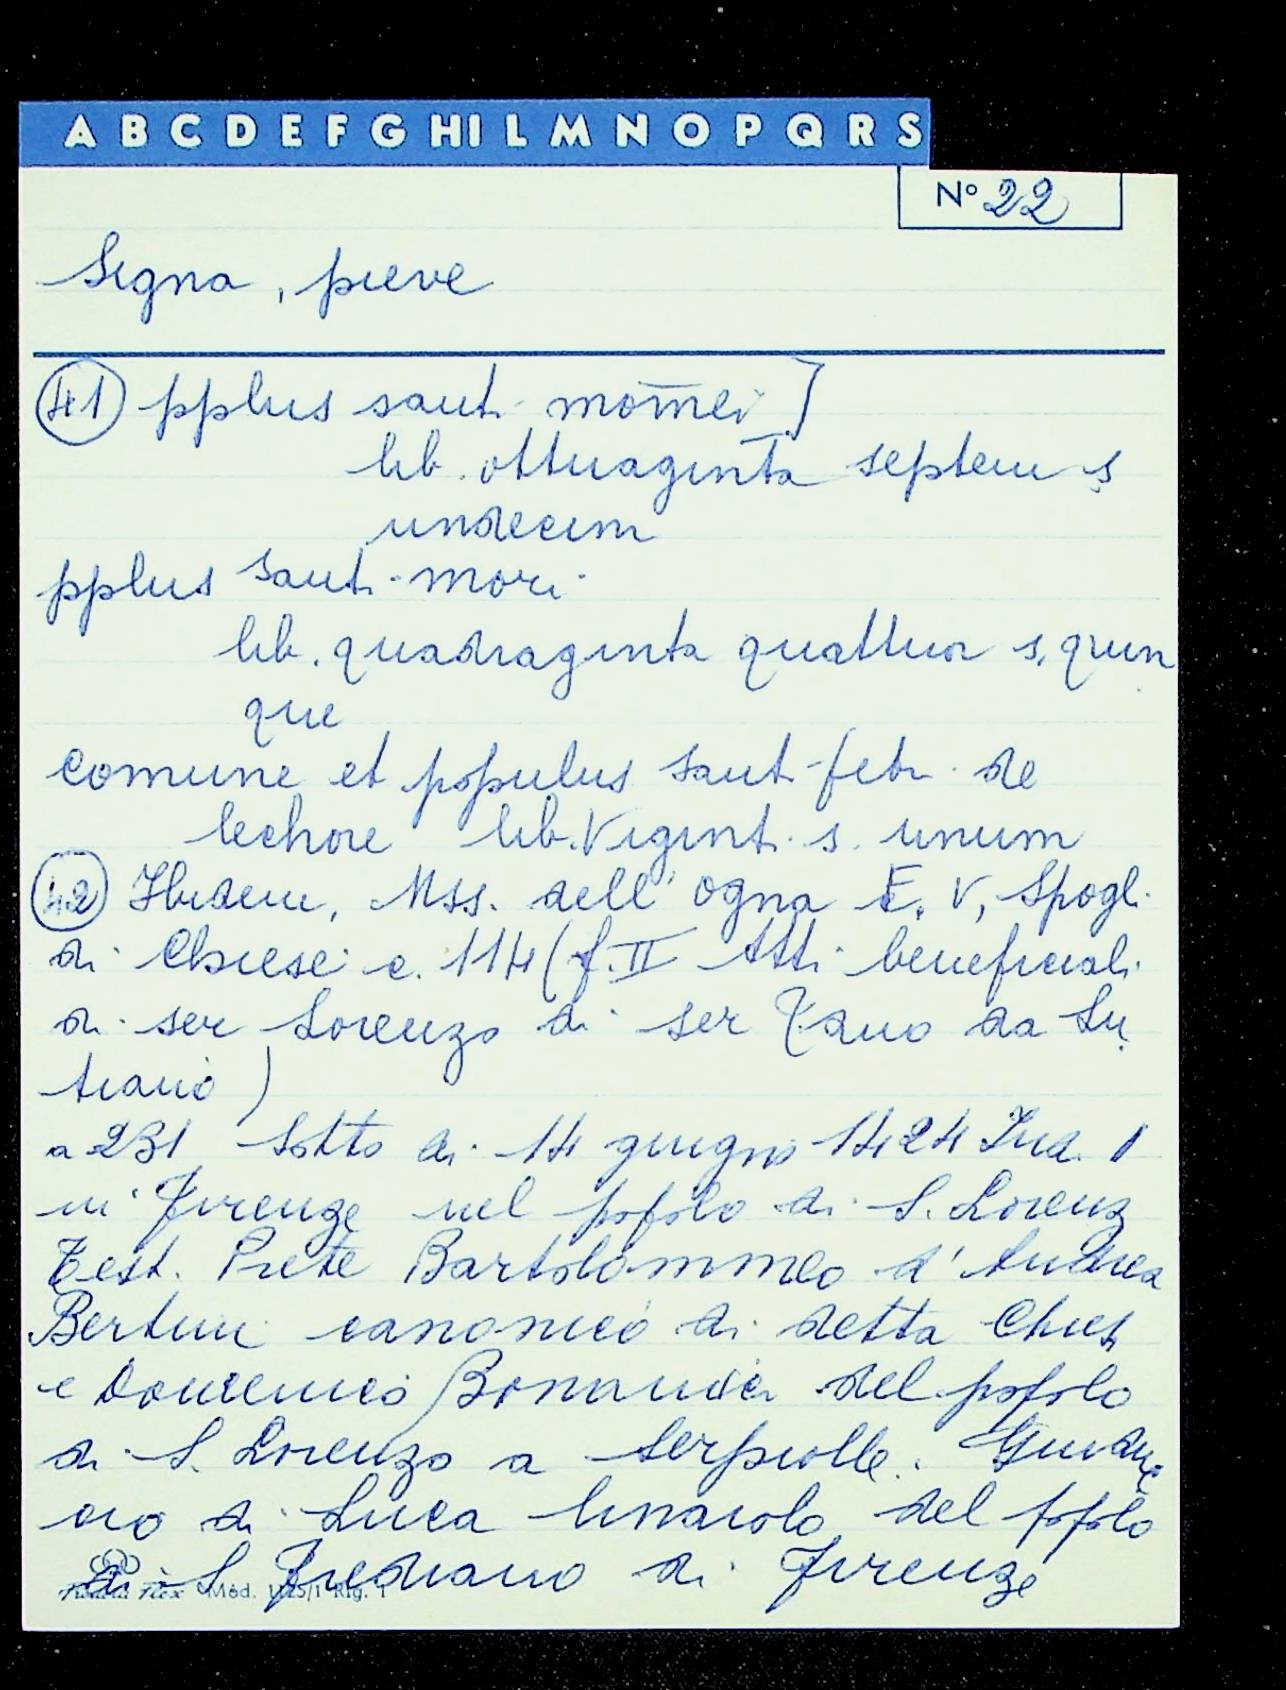 A B C D E F G HI L M N O P Q R S
N° 22
Signa, pieve
41 pplus sant. mom̄ei ]
lib. ottuagint̄a septem s
undecim
pplus sant. mori
lib. quadraginta quattuor s. quin
que
comune et populus sant. petr. de
lechore lib. Vigint. s. unum
42 Ibidem, Mss. dell'Ogna E. V, Spogli
di Chiese c. 114 (f. II Atti beneficiali
di ser Lorenzo di ser Tano da Lu
tiano)
a 231 Sotto di 14 giugno 1424 Ind. 1
in Firenze nel popolo di S. Lorenz
Test. Prete Bartolommeo d'Andrea
Bertini canonico di detta Chies
e Domenico Bonaiuti del popolo
di S. Lorenzo a Serpiolle.
di Luca linaiolo del popolo
di S Frediano di Firenze
Mod. Rig. 1